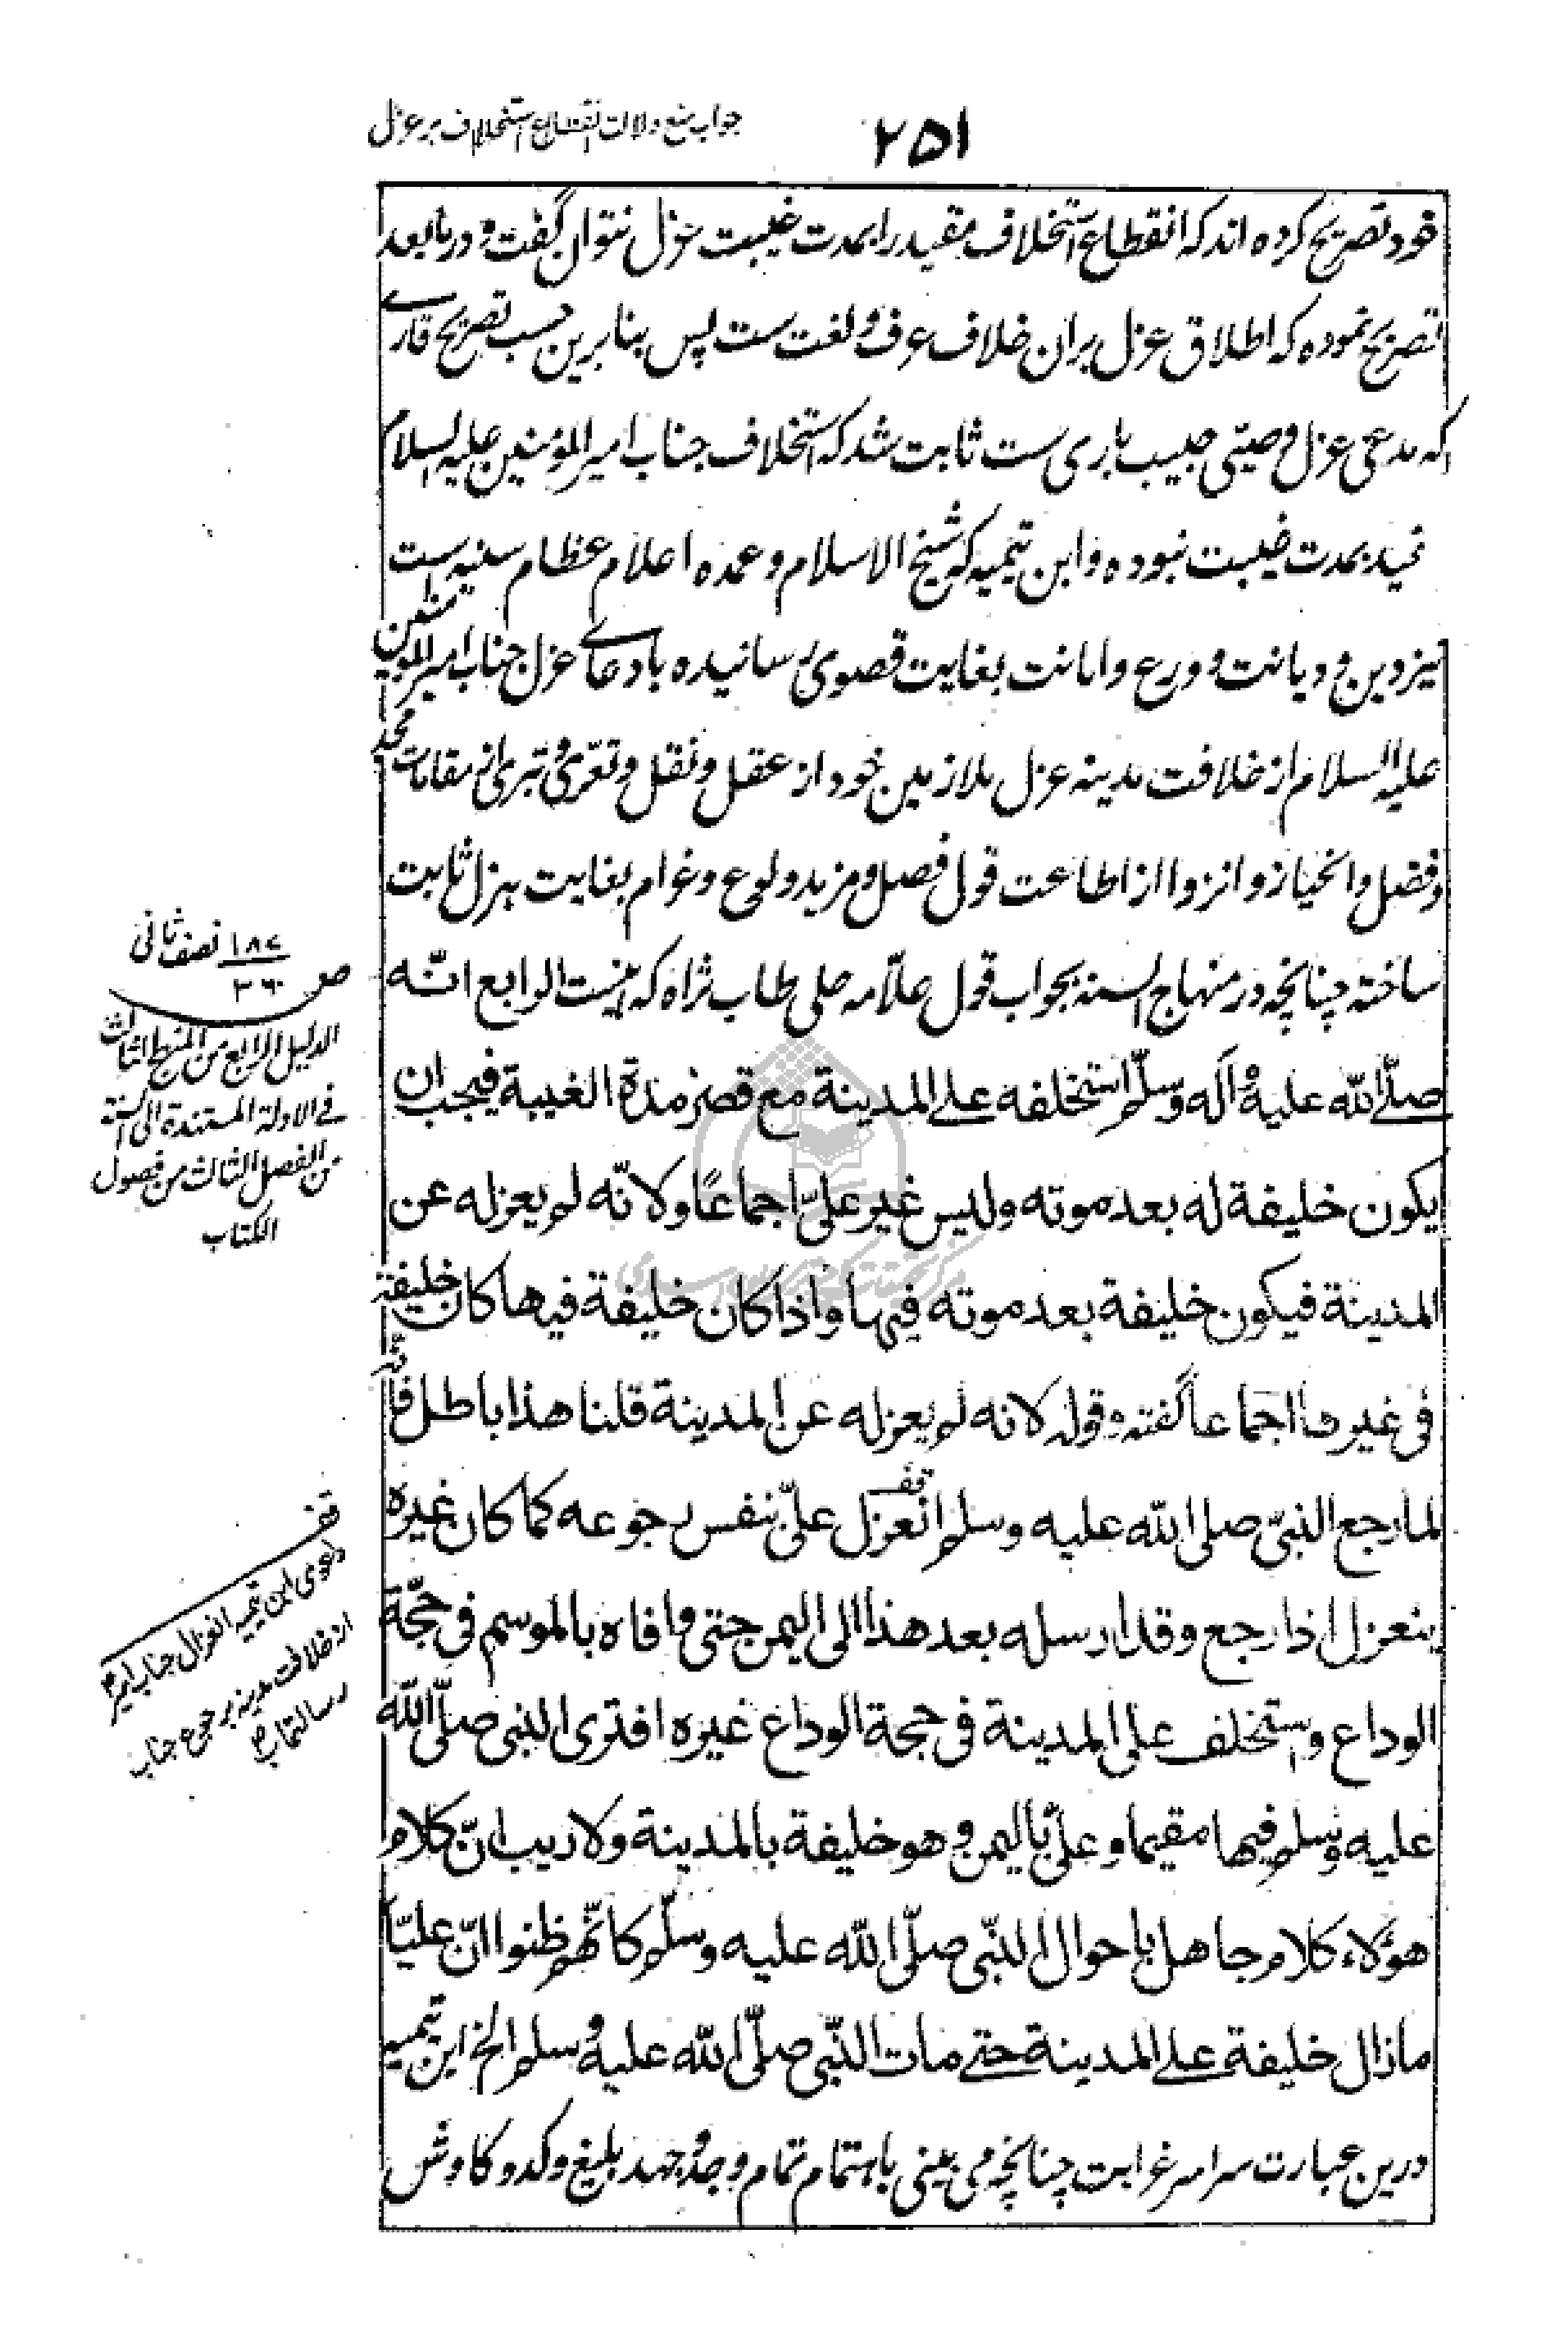 جواب منع دلالت انقطاع استخلاف بر عزل
٢٥١
خود تصریح کرده اند که انقطاع استخلاف مقید را بمدت غیبت عزل نتوان گفت و در ما بعد
تصریح نموده که اطلاق عزل بران خلاف عرف و لغت ست پس بنا برین حسب تصریح قاری
که مدعی عزل وصیّ حبیب باری ست ثابت شد که استخلاف جناب امیر المؤمنین علیه السلام
مقید بمدت غیبت نبوده و ابن تیمیه که شیخ الاسلام و عمده اعلام عظام سنیه ست
نیز دین و دیانت و ورع و امانت بغایت قصوی رسانیده بادعای عزل جناب امیر المؤمنین
علیه السلام از خلافت مدینه عزل ملازمین خود از عقل و نقل و تعرّی و تبری از مقامات مجد
و فضل و انحیاز و انزوا از اطاعت قول فصل و مزید ولوع و غرام بغایت هزل ثابت
ساخته چنانچه در منهاج السنه بجواب قول علّامه حلی طاب ثراه که اینست الرابع انّه
صلّى الله عليه وآله وسلّم استخلفه على المدينة مع قصر مدة الغيبة فيجب ان
يكون خليفة له بعد موته وليس غير علىّ اجماعًا ولانّه لم يعزله عن
المدينة فيكون خليفة بعد موته فيها واذا كان خليفة فيها كان خليفة
فى غيرها اجماعا گفته و قوله لانه لم يعزله عن المدينة قلنا هذا باطل فانّه
لما رجع النبىّ صلى الله عليه وسلم انعزل علىّ بنفس رجوعه كما كان غيره
قف
ينعزل اذا رجع وقد ارسله بعد هذا الى اليمن حتى وافاه بالموسم فى حجّة
الوداع واستخلف على المدينة فى حجة الوداع غيره افترى النبى صلّى الله
عليه وسلم فيها مقيما وعلىّ باليمن وهو خليفة بالمدينة ولا ريب انّ كلام
هؤلاء كلام جاهل باحوال النّبى صلّى الله عليه وسلّم كانّهم ظنوا انّ عليّا
ما زال خليفة على المدينة حتى مات النّبى صلّى الله عليه وسلم الخ ابن تیمیه
درین عبارت سراسر غرابت چنانچه می بینی باهتمام تمام و جدّ و جهد بلیغ و کد و کاوش
ص ١٨٢ / ٣٦٠ نصف ثانی
الدليل الرابع من المنهج الثالث
فى الادلة المستندة الى السنة
من الفصل الثالث من فصول
الكتاب
قف
دعوی ابن تیمیه انعزال جناب امیر
از خلافت مدینه برجوع جناب
رسالتمآب